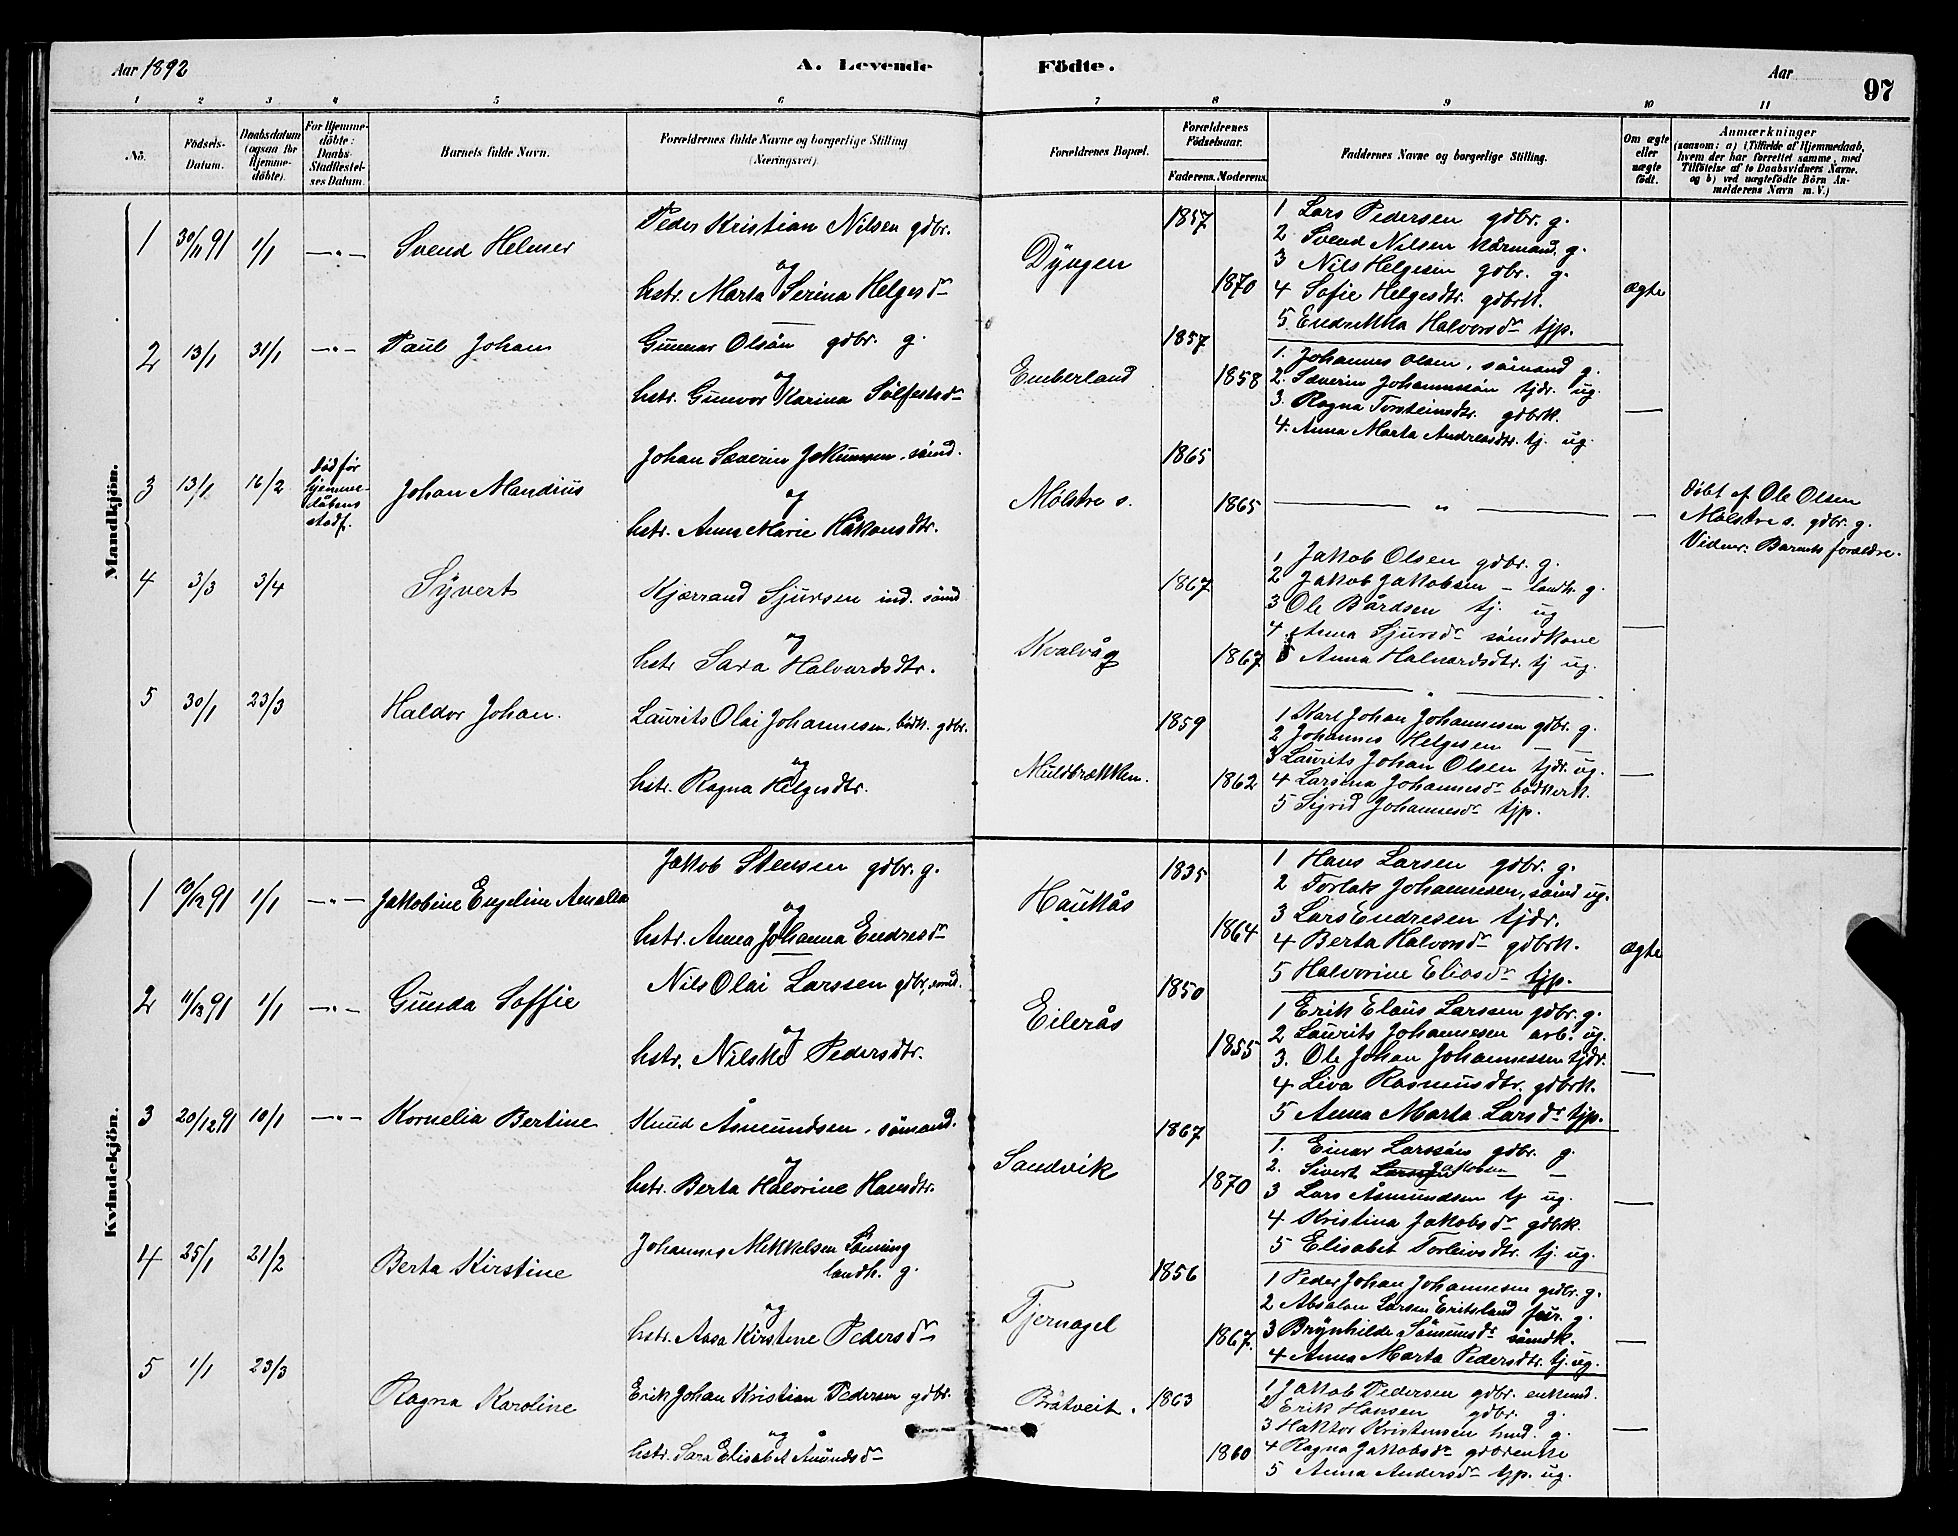 Aar 1892 A. Levende Födte. Aar 97
1 2 3 4 5 6 7 8 9 10 11
No. Födsels-Datum. Daabsdatum (ogsaa for Hjemme-döbte). For Hjemme-döbte: Daabs-Stadfæstel-ses Datum. Barnets fulde Navn. Forældrenes fulde Navne og borgerlige Stilling (Næringsvei). Forældrenes Bopæl. Forældrenes Födselsaar. Faderens. Moderens. Faddernes Navne og borgerlige Stilling. Om ægte eller uægte født. Anmærkninger (saasom: a) i Tilfælde af Hjemmedaab, hvem der har forrettet samme, med Tilföielse af to Daabsvidners Navne. og b) ved uægtefödte Börn An-melderens Navn m. V.)
Mandkjön.
1 30/11 91 1/1 —"— Svend Helmer
Peder Kristian Nilsen gdbr.
og
hstr. Marta Serina Helgesdr
Dyngen 1857 1870
1 Lars Pedersen gdbr. g.
2 Svend Nilsen kårmand g.
3 Nils Helgesen gdbr. g.
4 Sofie Helgesdtr. gdbrk.
5 Endrikka Halvorsdr tjp.
ægte
2 13/1 31/1 —"— Paul Johan
Gunnar Olsön gdbr. g.
og
hstr. Gunvor Karina Sölfestsdr
Emberland 1857 1858
1. Johannes Olsen, sömand g.
2. Severin Johannessön tjdr. ug.
3. Ragna Torsteinsdtr. gdbrk.
4. Anna Marta Andreasdtr. tj. ug.
—
3 13/1 16/2
död før
hjemme-
dåbens
stadf.
Johan Mandius
Johan Severin Jokumsen, sömd.
og
hstr. Anna Marie Håkonsdtr.
Mølstre s. 1865 1865
— " —
—
Døbt af Ole Olsen
Mølstre s. gdbr. g.
Vidner: Barnets forældre.
4 3/3 3/4 Syvert
Kjærrand Sjursen ind. sömd
og
hstr Sara Halvardsdtr.
Kvalvåg 1867 1867
1 Jakob Olsen gdbr. g.
2 Jakob Jakobsen – landh. g.
3 Ole Bårdsen tj. ug
4 Anna Sjursdr sömdkone
5 Anna Halvardsdtr. tj ug.
—
5 30/1 23/3 Haldor Johan.
Laurits Olai Johannesen, bødk. gdbr.
og
hstr. Ragna Helgesdtr.
Muldbrækken. 1859 1862
1 Karl Johan Johannesen gdbr. g.
2 Johannes Helgesen — —
3 Laurits Johan Olsen tjdr. ug.
4 Larsina Johannesdr bødkerk.
5 Sigrid Johannesdr tjp.
—
Kvindekjön.
1 10/12 91 1/1 —"— Jakobine Engeline Amalia
Jakob Stensen gdbr. g.
og
hstr. Anna Johanna Endresdr
Haukås 1835 1864
1 Hans Larsen gdbr. g.
2 Torlak Johannesen, sömd ug.
3 Lars Endresen tjdr.
4 Berta Halvorsdr gdbrk.
5 Halvorine Eliasdr tjp.
ægte
2 11/12 91 1/1 —"— Gunda Soffie
Nils Olai Larssen gdbr, sömd.
og
hstr. Nilske Pedersdtr.
Eilerås 1850 1855
1 Erik Elaus Larssen gdbr. g.
2 Laurits Johannesen arb. ug.
3. Ole Johan Johannessen tjdr.
4 Liva Rasmusdtr. gdbrk.
5 Anna Marta Larsdr tjp.
—
3 20/12 91 10/1 —"— Kornelia Bertine
Knud Åsmundsen, sömand.
og
hstr. Berta Halvorine Hansdtr.
Sandvik 1867 1870
1. Einar Larssön gdbr. g.
2. Sivert Larssen Jakobsen — —
3 Lars Åsmundsen tj ug.
4 Kristina Jakobsdr gdbrk.
5 Elisabet Torleivsdtr. tj. ug.
—
4 25/1 21/2 Berta Kirstine
Johannes Mikkelsen
landh. g.
og
hstr. Aasa Kirstine Pedersdr
Tjernagel 1856 1867.
1 Peder Johan Johannesen gdbr. g.
2 Absalon Larsen g.
3 Brynhilde sömdk.
4 Anna Marta Pedersdtr. tj. ug.
—
5 1/1 23/3 Ragna Karoline
Erik Johan Kristian Pedersen gdbr.
og
hstr. Sara Elisabet Åmundsdr
Bråtveit. 1863 1860
1 Jakob Pedersen gdbr. enkemd.
2 Erik Hansen gdbr. g.
3 Haktor Kristensen hmd. g.
4 Ragna Jakobsdr gdbrenke
5 Anna Andersdr tjp. ug.
—